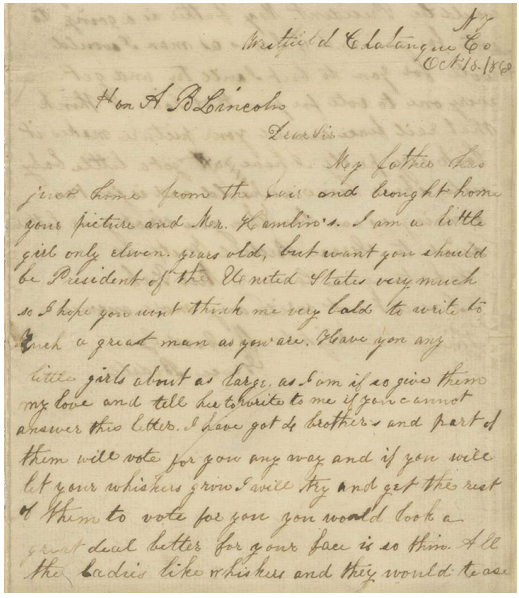 N Y
Westfield Chatauque Co
Oct 15. 1860
Hon A B Lincoln
Dear Sir
My father has
just home from the fair and brought home
your picture and Mr. Hamlin's. I am a little
girl only eleven years old, but want you should
be President of the United States very much
so I hope you wont think me very bold to write to
such a great man as you are. Have you any
little girls about as large as I am if so give them
my love and tell her to write to me if you cannot
answer this letter. I have got 4 brother's and part of
them will vote for you any way and if you will
let your whiskers grow I will try and get the rest
of them to vote for you you would look a
great deal better for your face is so thin. All
the ladies like whiskers and they would tease